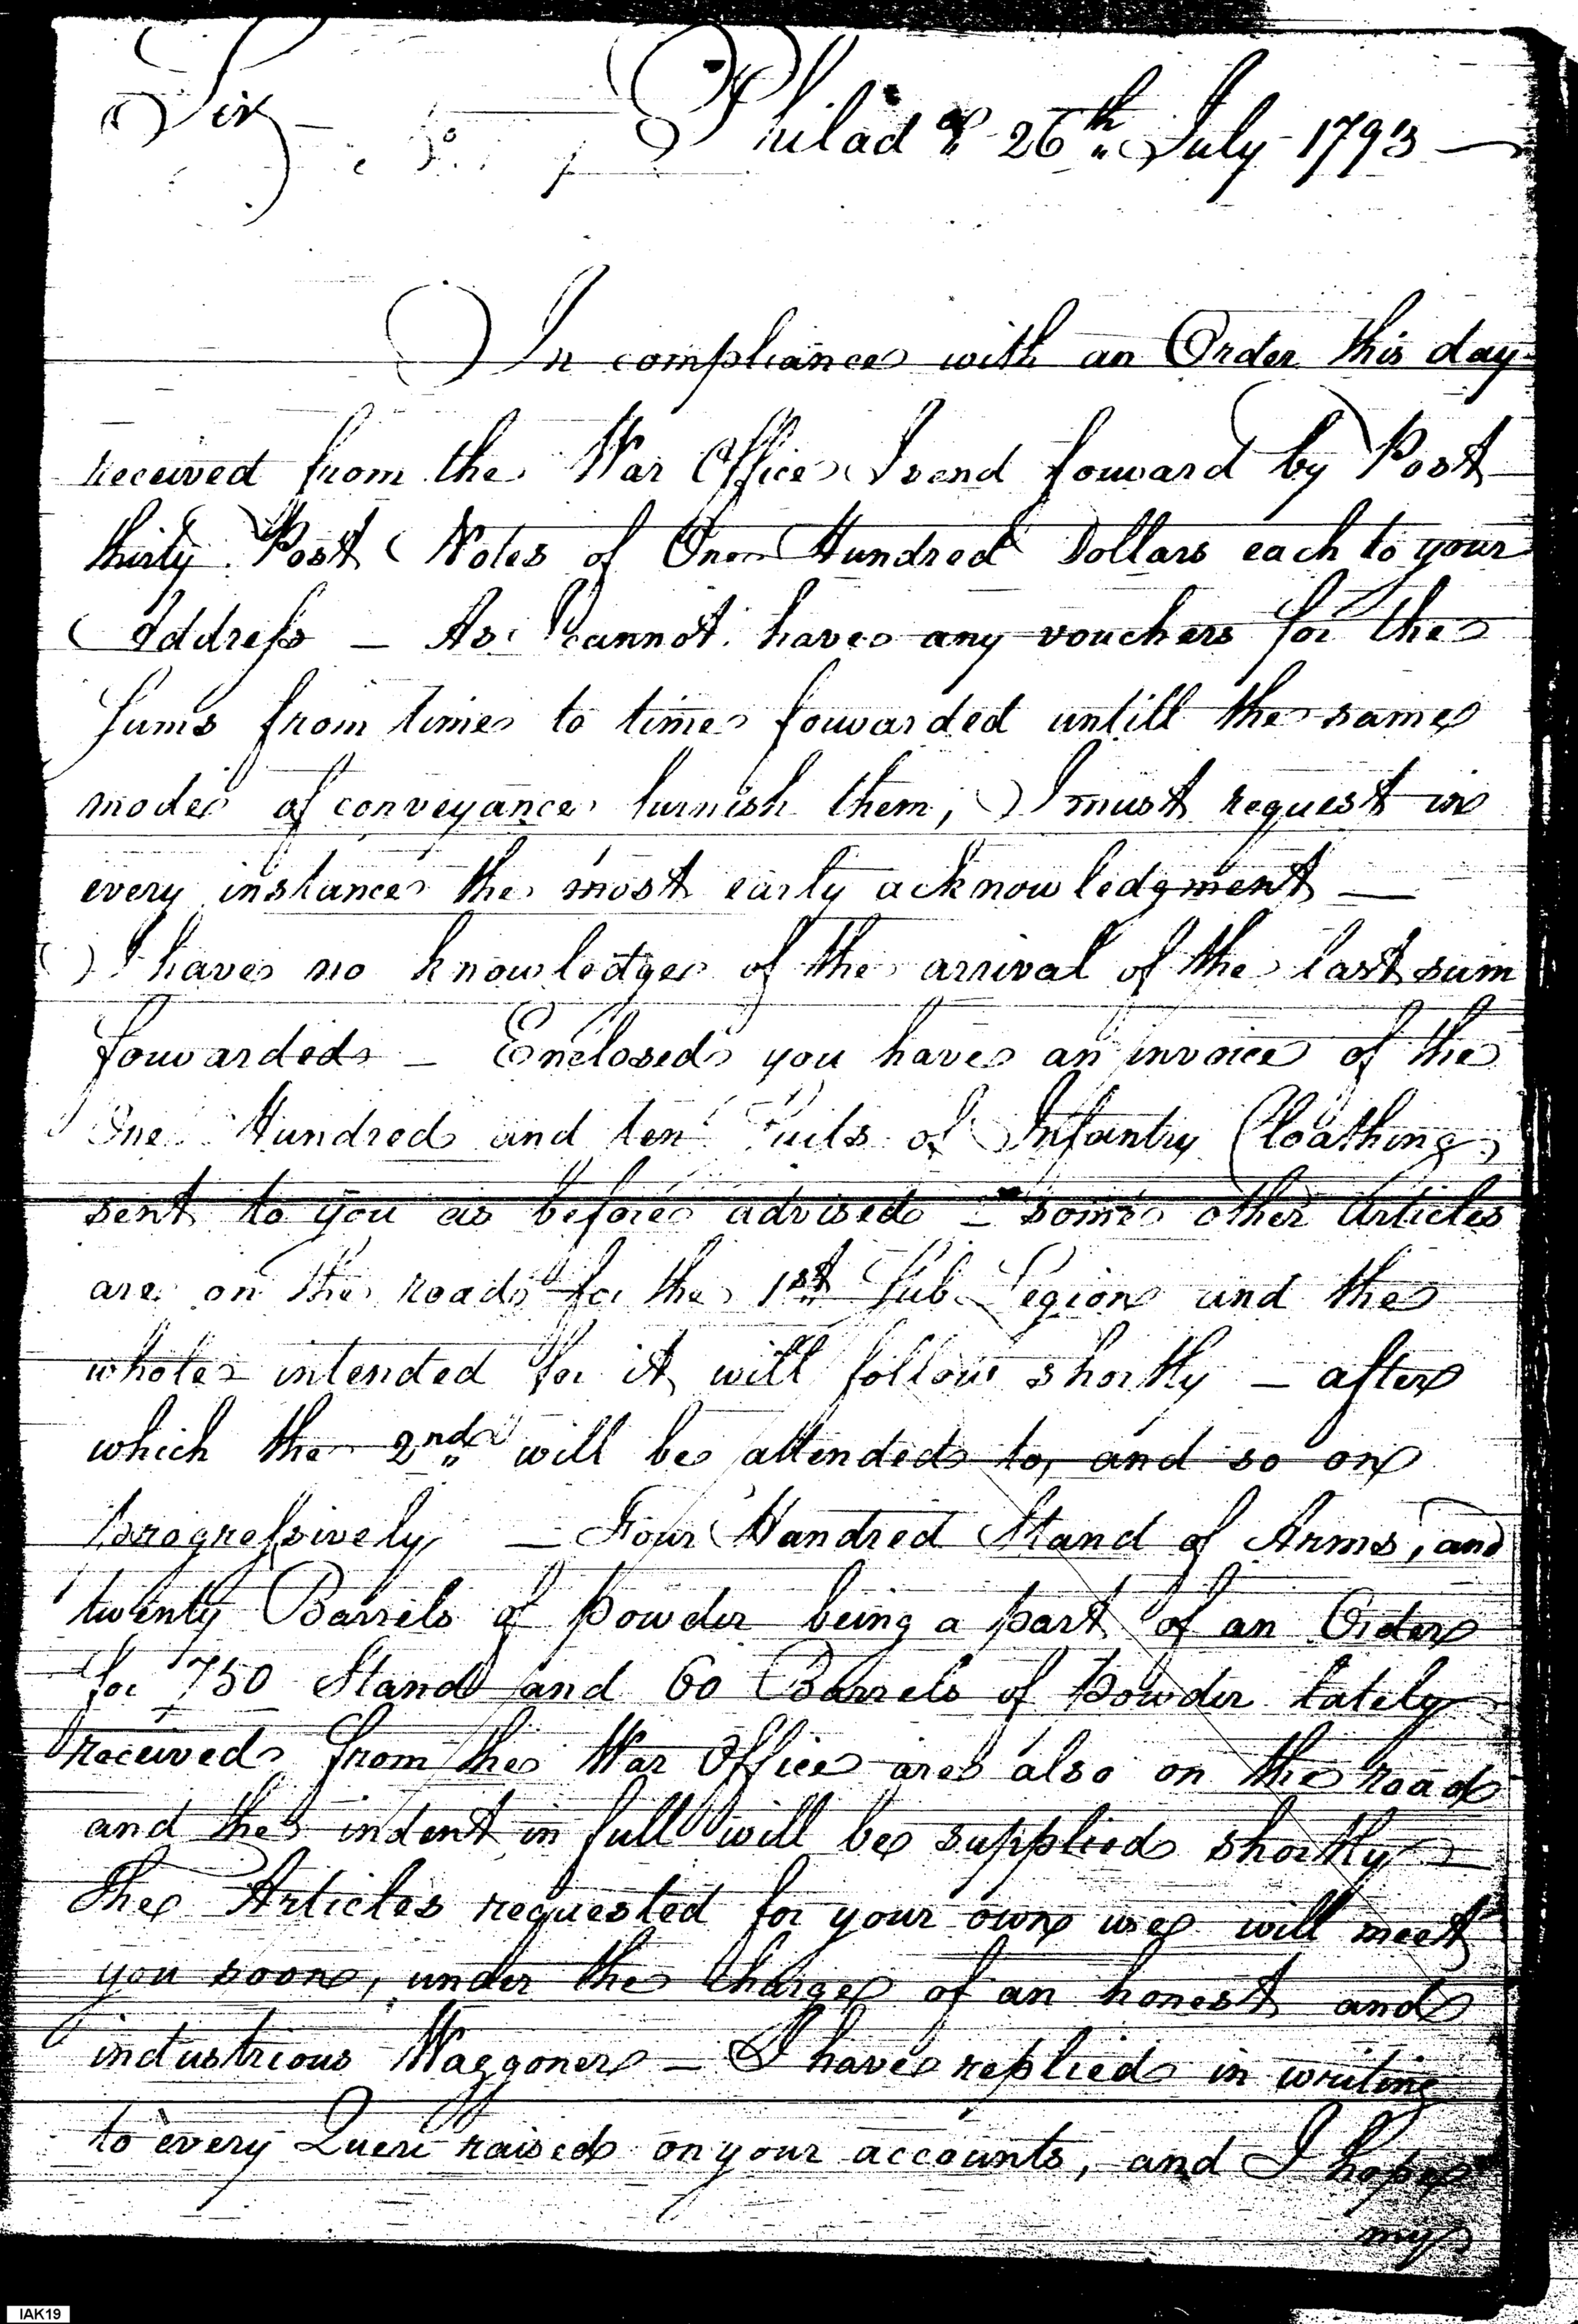 Sir — Philad.a 26th July 1793 —
In compliance with an Order this day
received from the War Office I send forward by Post
thirty Post Notes of One Hundred Dollars each to your
Address — As I cannot have any vouchers for the
Sums from time to time forwarded untill the same
mode of conveyance furnish them, I must request in
every instance the most early acknowledgment —
I have no knowledge of the arrival of the last sum
forwarded — Enclosed you have an invoice of the
One Hundred and ten Suits of Infantry Cloathing
sent to you as before advised — some other Articles
are on the road for the 1st Sub Legion and the
whole intended for it will follow shortly — after
which the 2nd will be attended to, and so on
progressively — Four Hundred Stand of Arms, and
twenty Barrels of powder being a part of an Order
for 750 Stand and 60 Barrels of powder lately
received from the War Office are also on the road
and the indent in full will be supplied shortly —
The Articles requested for your own use will meet
you soon, under the Charge of an honest and
industrious Waggoner — I have replied in writing
to every Queri raised on your accounts, and I hope
my
IAK19